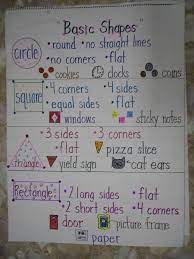 Basic Shapes
circle
• round • no straight lines
• no corners • flat
cookies clocks coins
square
• 4 corners • 4 sides
• equal sides • flat
windows sticky notes
triangle
• 3 sides • 3 corners
• flat pizza slice
yield sign cat ears
Rectangle
• 2 long sides • flat
• 2 short sides • 4 corners
door picture frame
paper